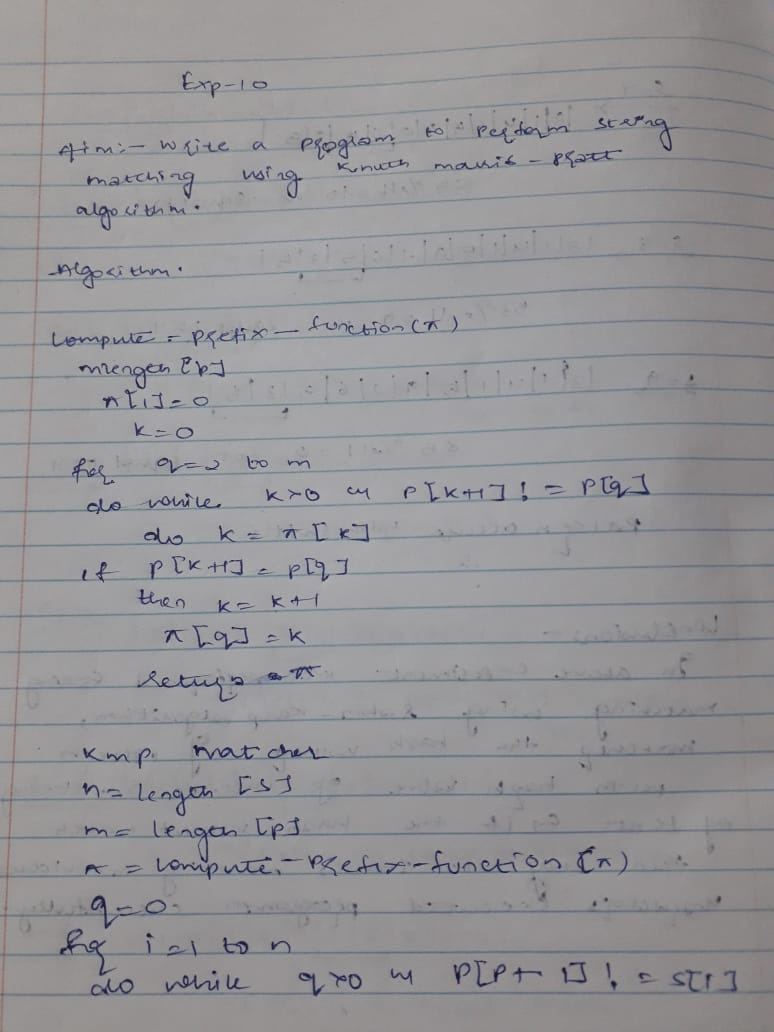 Exp-10
Aim:- Write a program to perform string
matching using Knuth Morris - Pratt
algorithm.
Algorithm.
Compute - Prefix - function (π)
m=length [p]
π[1]=0
k=0
for q=2 to m
do while k>0 and P[k+1] != P[q]
do k = π[k]
if P[k+1] = p[q]
then k = k+1
π[q] = k
return π
Kmp. Matcher
n = length [S]
m = length [p]
π = Compute - Prefix - function (π)
q=0
for i=1 to n
do while q>0 P[P+1] != S[i]